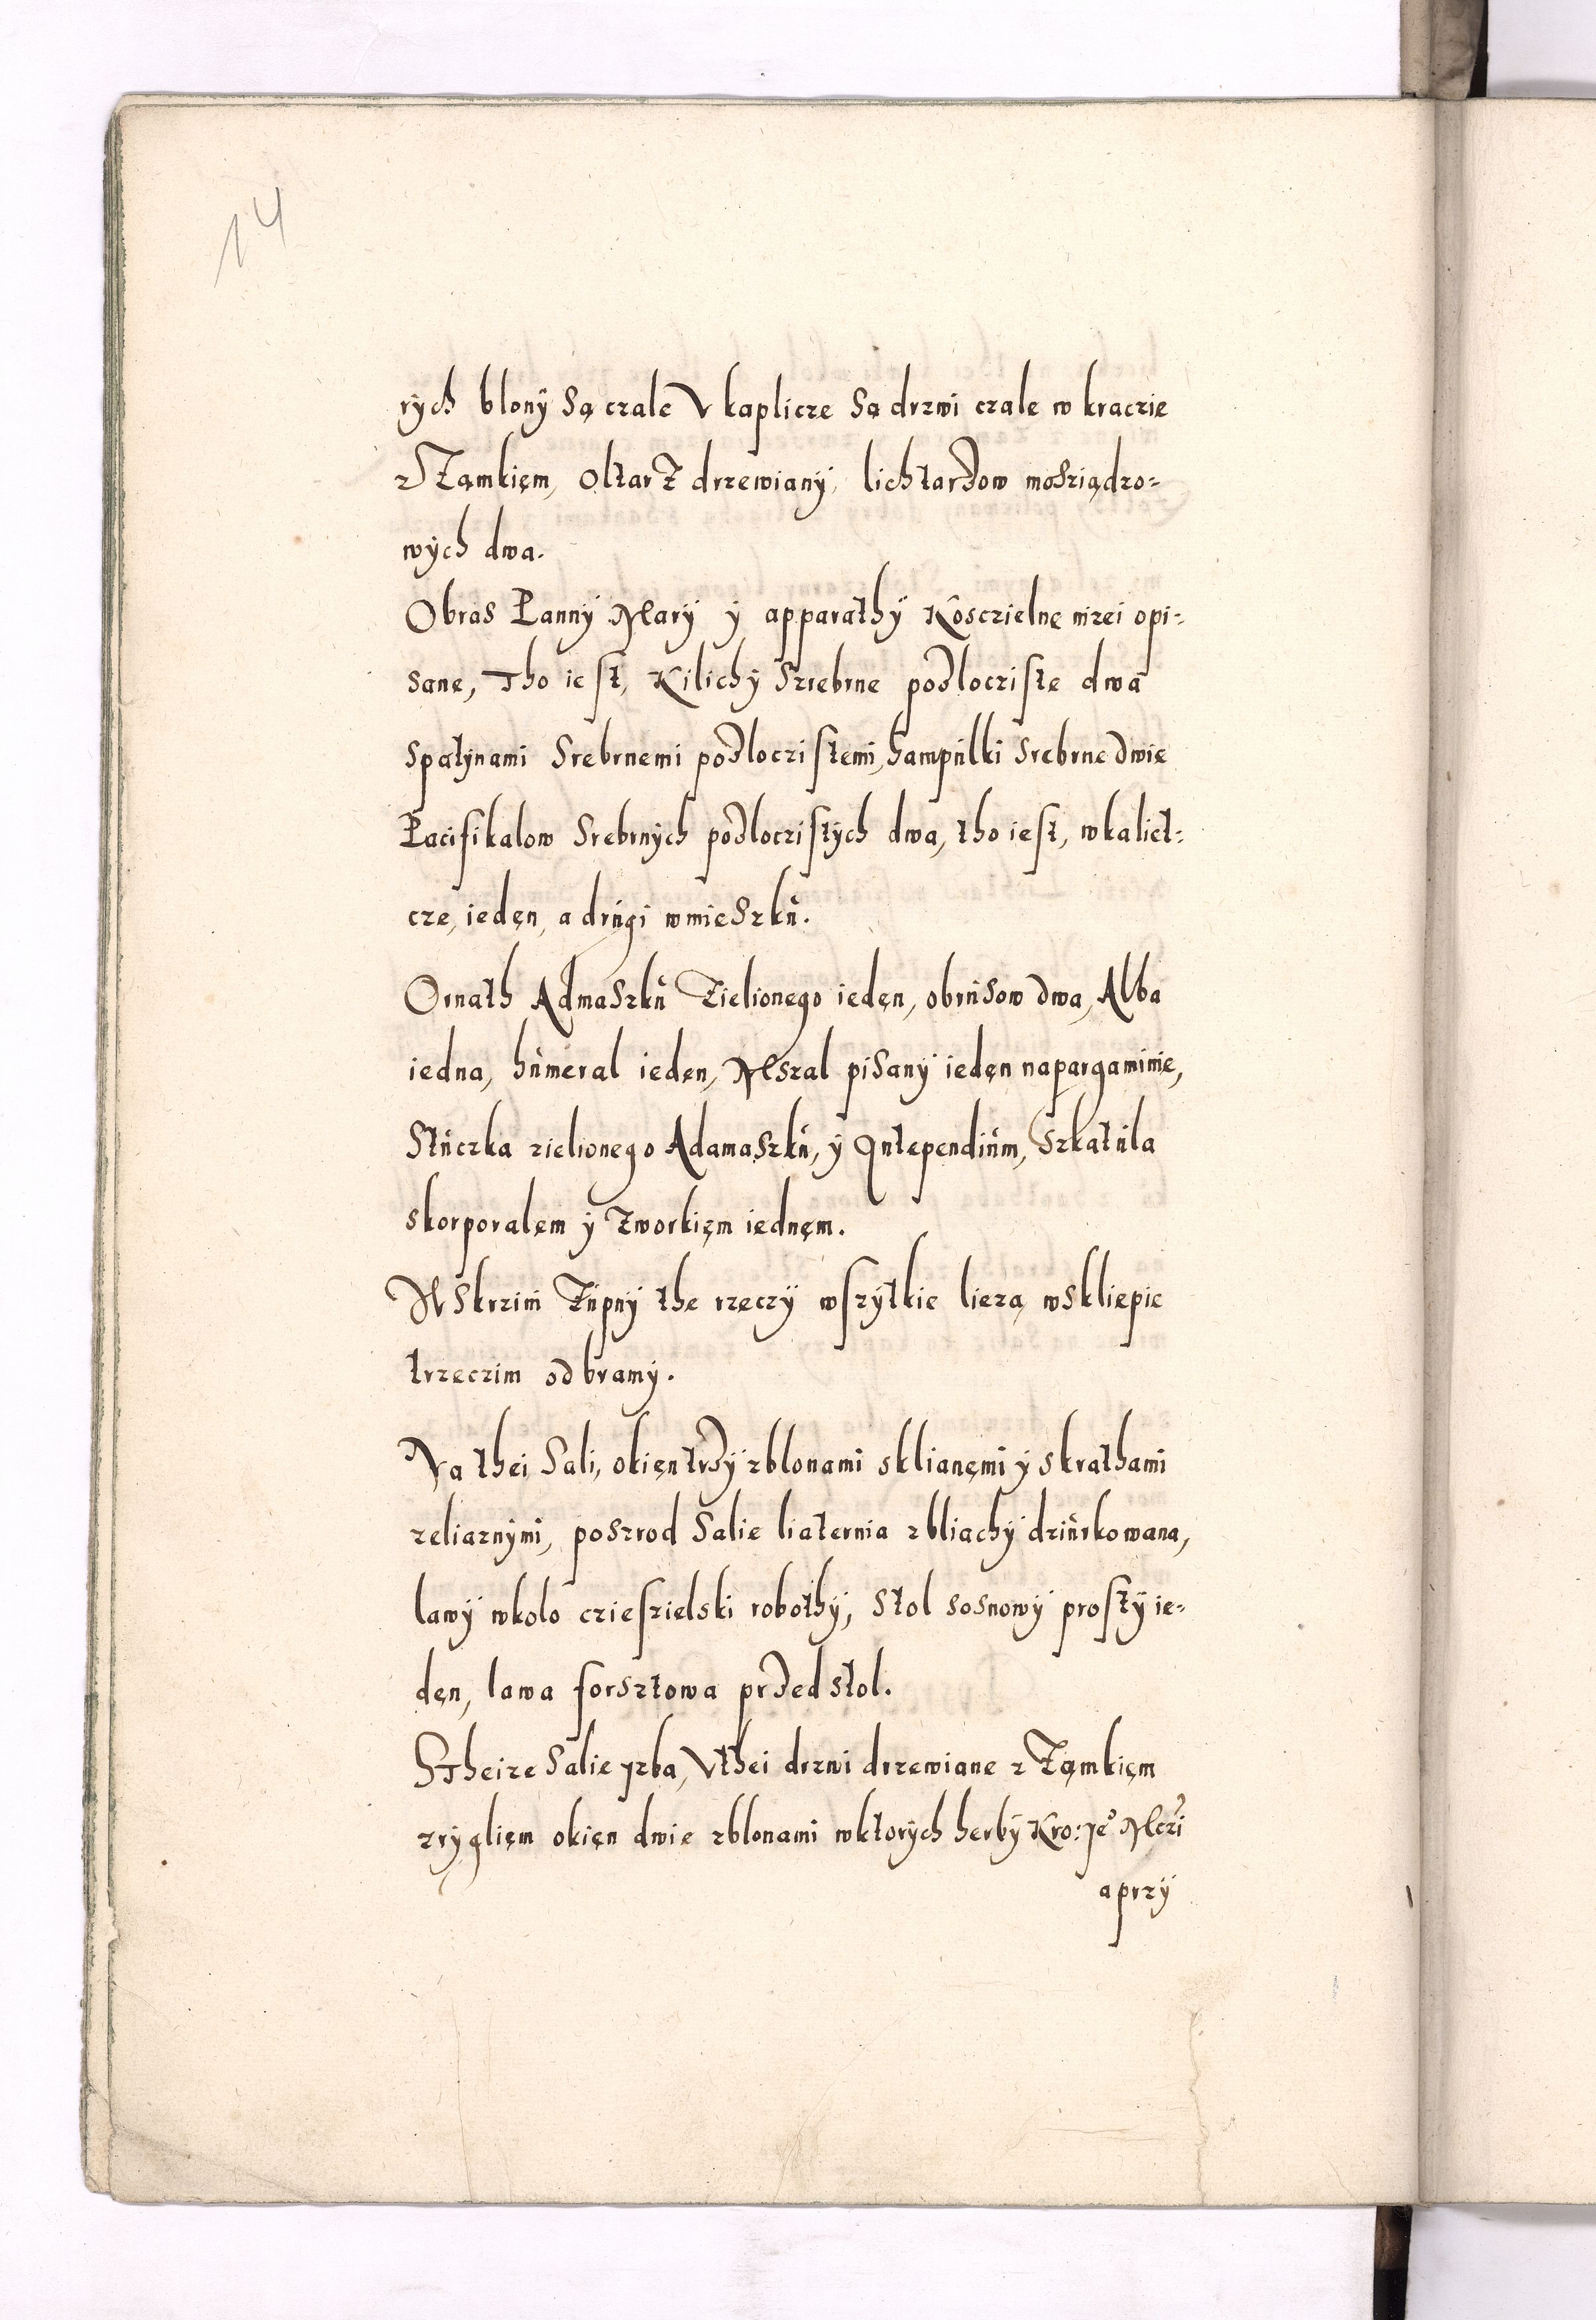 14
rych blonÿ są czale V kaplicze są drzwi czale w kraczie
z Zamkięm, Ołtarz drzewianÿ, lichtarzow mosziądzo-
wÿch dwa.
Obras Pannÿ Marÿ ÿ apparathÿ Kosczielnę nizei opi-
sane, Tho iest, Kilichÿ Sriebrne pozlocziste dwa
spatÿnami Srebrnemi pozloczistemi, hampulki Srebrne dwie
Pacifikalow Srebrnÿch pozloczistÿch dwa, tho iest, wkaliet-
cze, iedęn, a drugi wmieszku.
Ornath Admaszku Zielionego iedęn, obrusow dwa, Alba
iedna, humeral iedęn, Mszal pisanÿ iedęn napargaminie,
Stuczka zielionego Adamaszku, ÿ Antependium, Szkatula
skorporalem ÿ zworkięm iednęm.
W Skrzini Zupnÿ the rzeczÿ wszÿtkie lieza wskliepie
trzeczim od bramÿ.
Na thei Sali, okięn trzÿ zblonami sklianęmi ÿ skrathami
zeliaznÿmi, poszrod Salie liaternia zbliachÿ dziurkowana,
lawÿ wkolo cziesielski robothÿ, Stol sosnowÿ prostÿ ie-
dęn, lawa forsztowa przed stol.
S Theize Salie yzba, V thei drzwi drzewiane z Zamkięm
zrÿglięm okięn dwie zblonami wktorÿch herbÿ Kro: Je° Mczi
aprzÿ